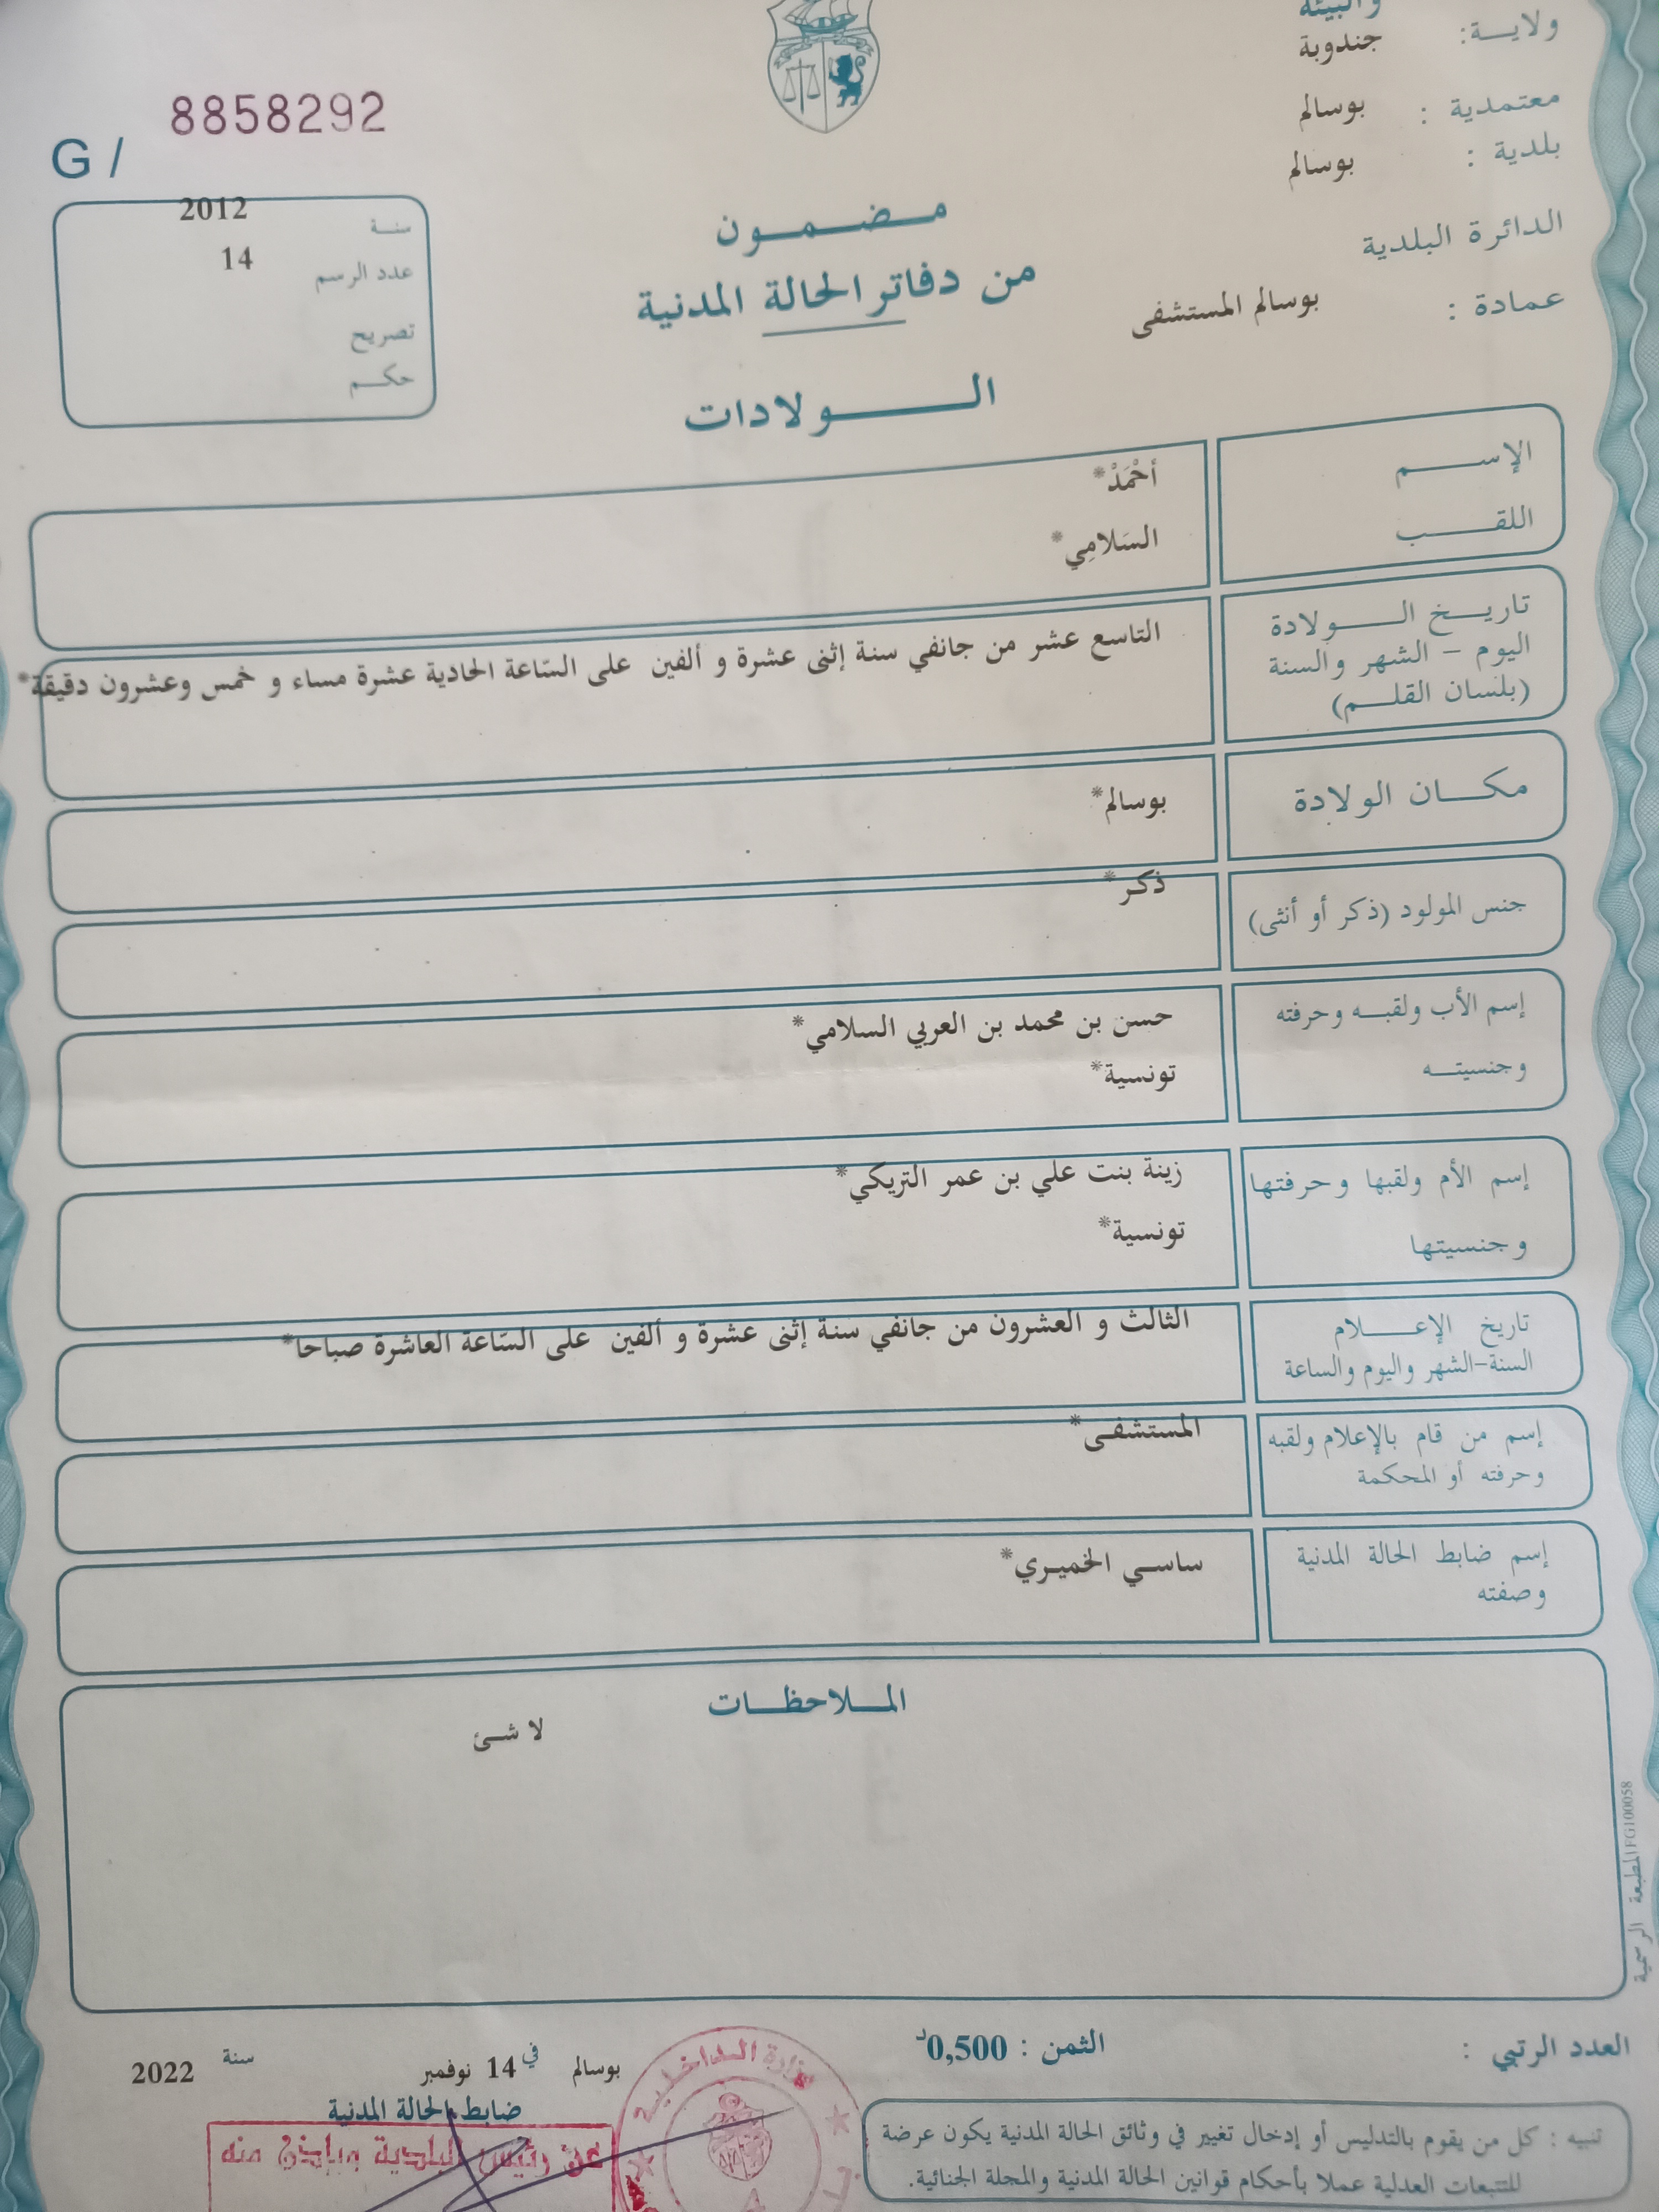 والبيئة
ولايـــة: جندوبة
معتمدية : بوسالم
بلدية : بوسالم
الدائرة البلدية
عمادة : بوسالم المستشفى
G / 8858292
سنـة 2012
عدد الرسم 14
تصريح
حكـــم
مــضــمــون
من دفاتر الحالة المدنية
الـــولادات
الإســـــم أحْمَدْ*
اللقـــــب السَلامِي*
تاريــخ الـــولادة
اليوم - الشهر والسنة
(بلسان القلـــم)
التاسع عشر من جانفي سنة إثنى عشرة و ألفين على السّاعة الحادية عشرة مساء و خمس وعشرون دقيقة*
مكـــان الولادة بوسالم*
جنس المولود (ذكر أو أنثى) ذكر*
إسم الأب ولقبــه وحرفته حسن بن محمد بن العربي السلامي*
وجنسيتــه تونسية*
إسم الأم ولقبها وحرفتها زينة بنت علي بن عمر التريكي*
وجنسيتها تونسية*
تاريخ الإعـــــلام
السنة-الشهر واليوم والساعة
الثالث و العشرون من جانفي سنة إثنى عشرة و ألفين على السّاعة العاشرة صباحا*
إسم من قام بالإعلام ولقبه
وحرفته أو المحكمة
المستشفـى*
إسم ضابط الحالة المدنية
وصفته
ساسـي الخميـري*
المـــلاحظـــات
لا شـئ
المطبعة الرسمية FG100058
العدد الرتبي :
الثمن : 0,500د
بوسالم في 14 نوفمبر سنة 2022
ضابط الحالة المدنية
عن رئيس البلدية وبإذن منه
وزارة الـداخـليـة
تنبيه : كل من يقوم بالتدليس أو إدخال تغيير في وثائق الحالة المدنية يكون عرضة
للتتبعات العدلية عملا بأحكام قوانين الحالة المدنية والمجلة الجنائية.